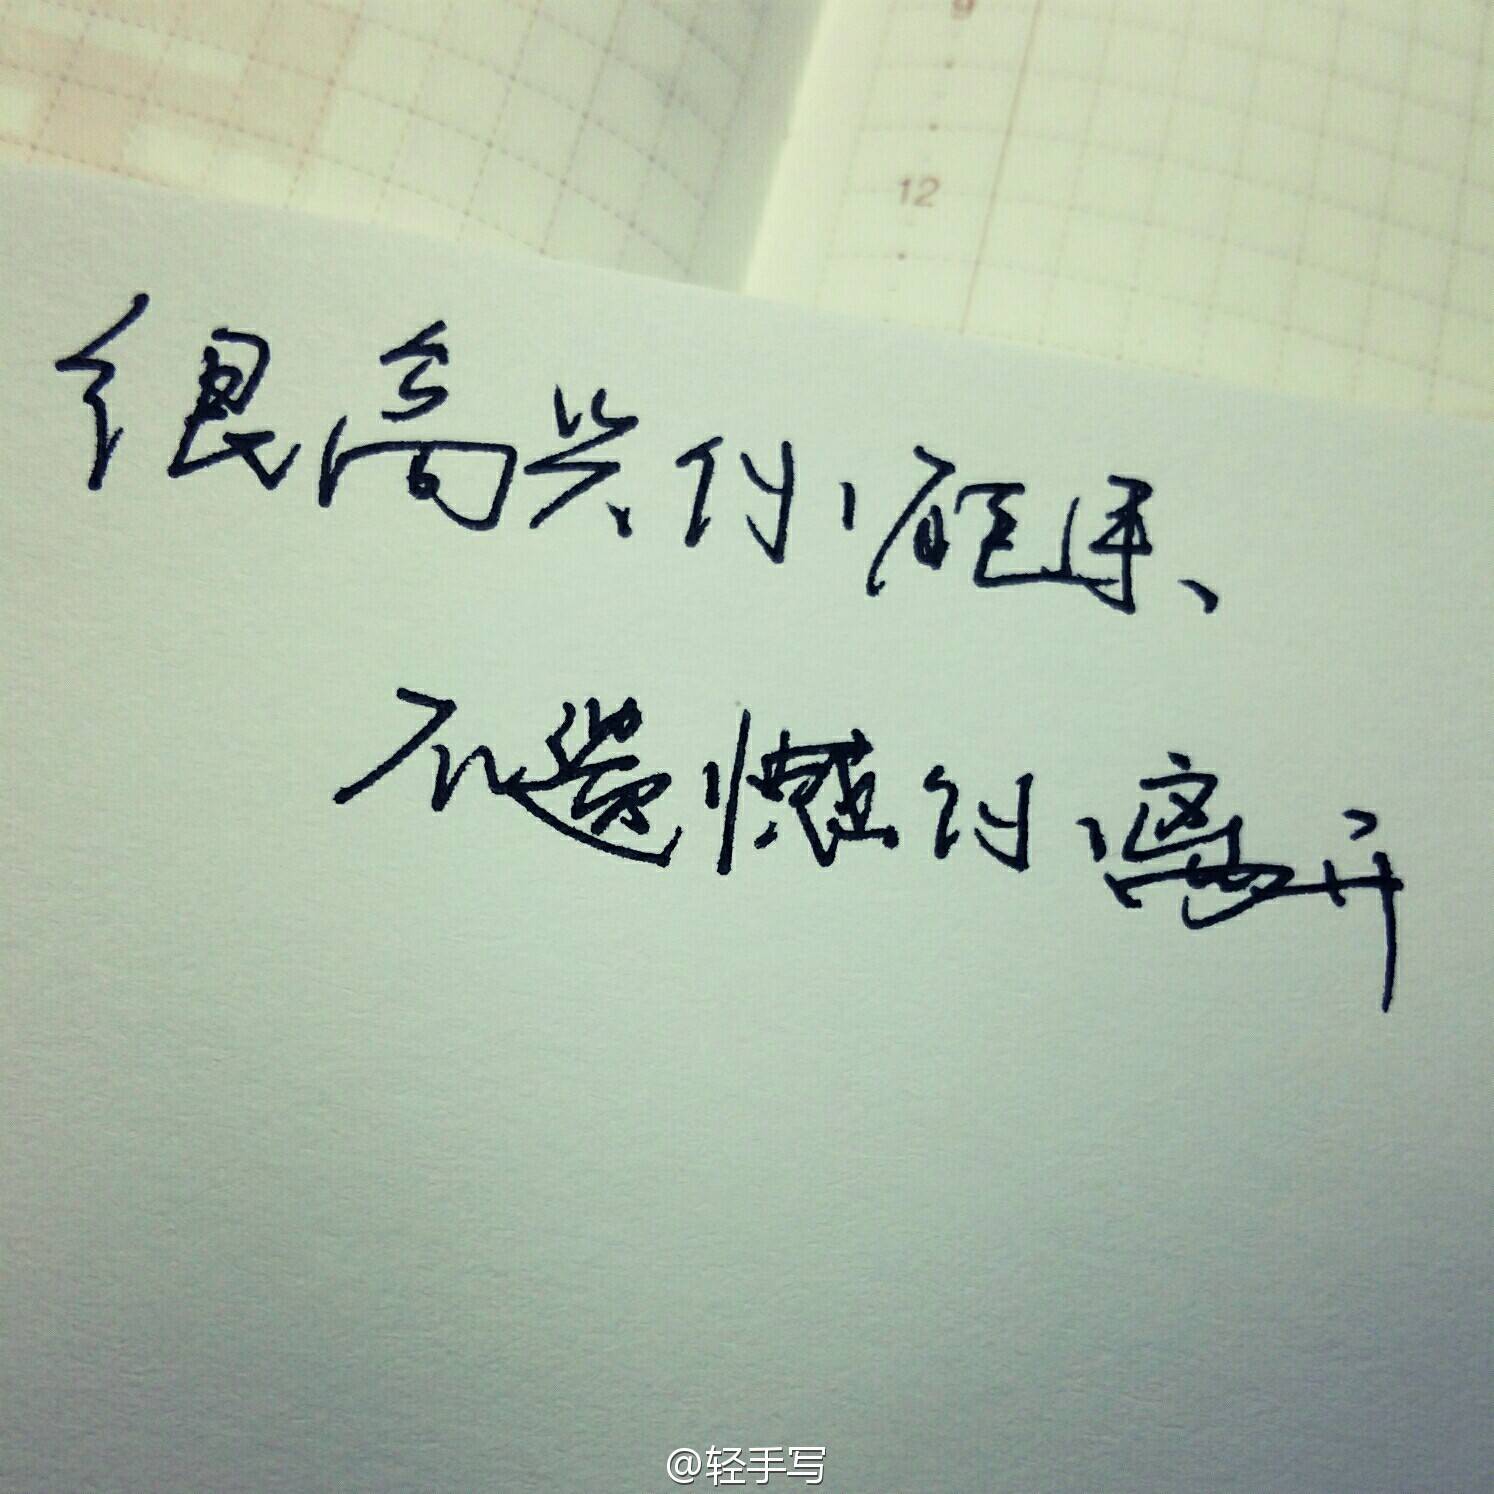 9
12
很高兴你
不遗憾你离开
@轻手写